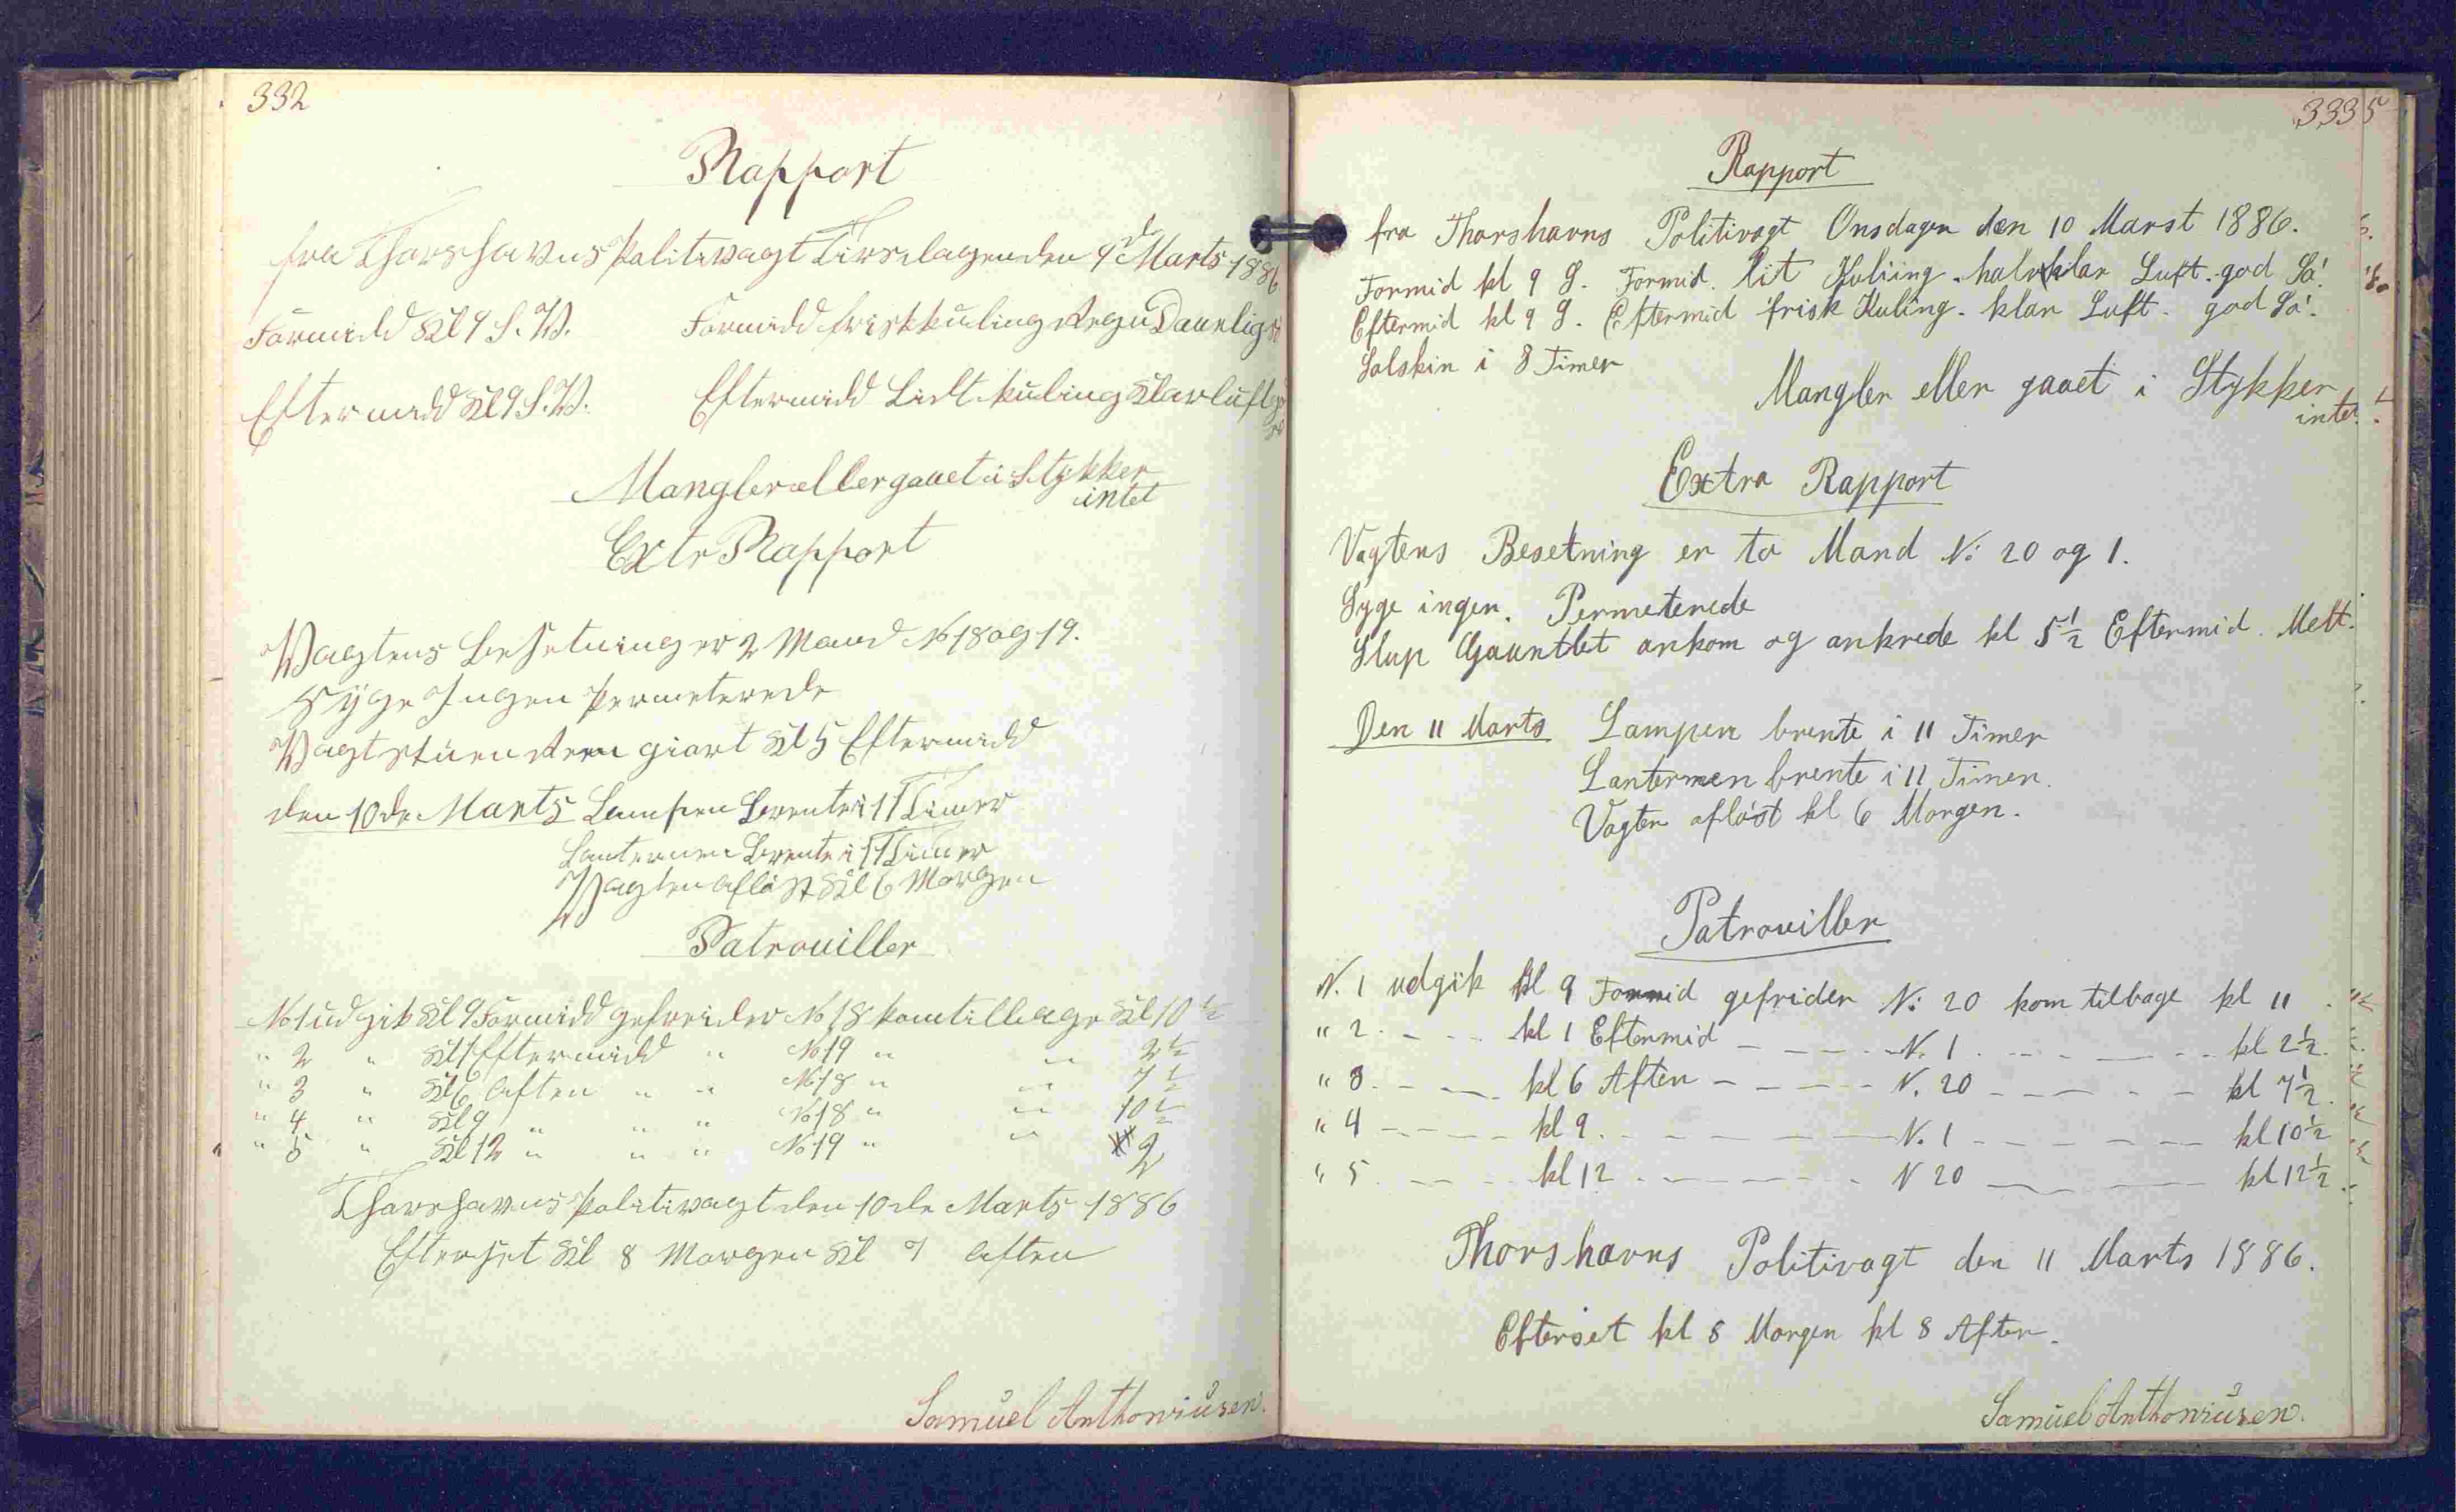 332
Rapport
fra Thorshavns Politivagt Tirsdagen den 9de Marts 1886
Formidd Kl 9 S.V. Formidd frisk kuling Regn Daarlig
Eftermidd Kl 9 S.V. Eftermidd Lidt kuling Klar luft
Mangler eller gaaet i Stykker
intet
Extr Rapport
Vagtens Besetning er 2 Mand No 18 og 19.
Syge Ingen Permeterede
Vagtstuen Ren giort Kl 5 Eftermidd
den 10de Marts Lampen Brente i 11 Timer
Lanternen Brente i 11 Timer
Vagten afløst Kl 6 Morgen
Patrouiller
No 1 udgik Kl 9 Formidd gefreider No 18 kom tilbage Kl 10 1/2
" 2 " Kl 1 Eftermidd " No 19 " " 2 1/2
" 3 " Kl 6 Aften " " No 18 " " 7 1/2
" 4 " Kl 9 " " " No 18 " " 10 1/2
" 5 " Kl 12 " " " No 19 " " 2
Thorshavns Politivagt den 10de Marts 1886
Efterset Kl 8 Morgen Kl 7 Aften
Samuel Anthoniusen.
333
5
Rapport
fra Thorshavns Politivagt Onsdagen den 10 Marst 1886.
Formid kl 9 S. Formid. lit Kuliing. halvklar Luft. god Sö.
Eftermid kl 9 S. Eftermid frisk Kuling. klar Luft. god Sö.
Solskin i 8 Timer
Mangler eller gaaet i Stykker
intet.
Extra Rapport
Vagtens Besetning er to Mand N: 20 og 1.
Syge ingen. Permeterede
Slup Gauntlet ankom og ankrede kl 5 1/2 Eftermid. Mett.
Den 11 Marts Lampen brente i 11 Timer
Lanternen brente i 11 Timer.
Vagten afløst kl 6 Morgen.
Patrouiller
N. 1 udgik kl 9 Formid gefrider N: 20 kom tilbage kl 11
" 2. - - - kl 1 Eftermid - - - - N. 1 - - - - kl 2 1/2.
" 3. - - - kl 6 Aften - - - - N. 20 - - - - kl 7 1/2.
" 4 - - - - kl 9. - - - - N. 1 - - - - kl 10 1/2
" 5. - - - kl 12 - - - - N 20 - - - - kl 12 1/2.
Thorshavns Politivagt den 11 Marts 1886.
Efterset kl 8 Morgen kl 8 Aften.
Samuel Anthoniusen.